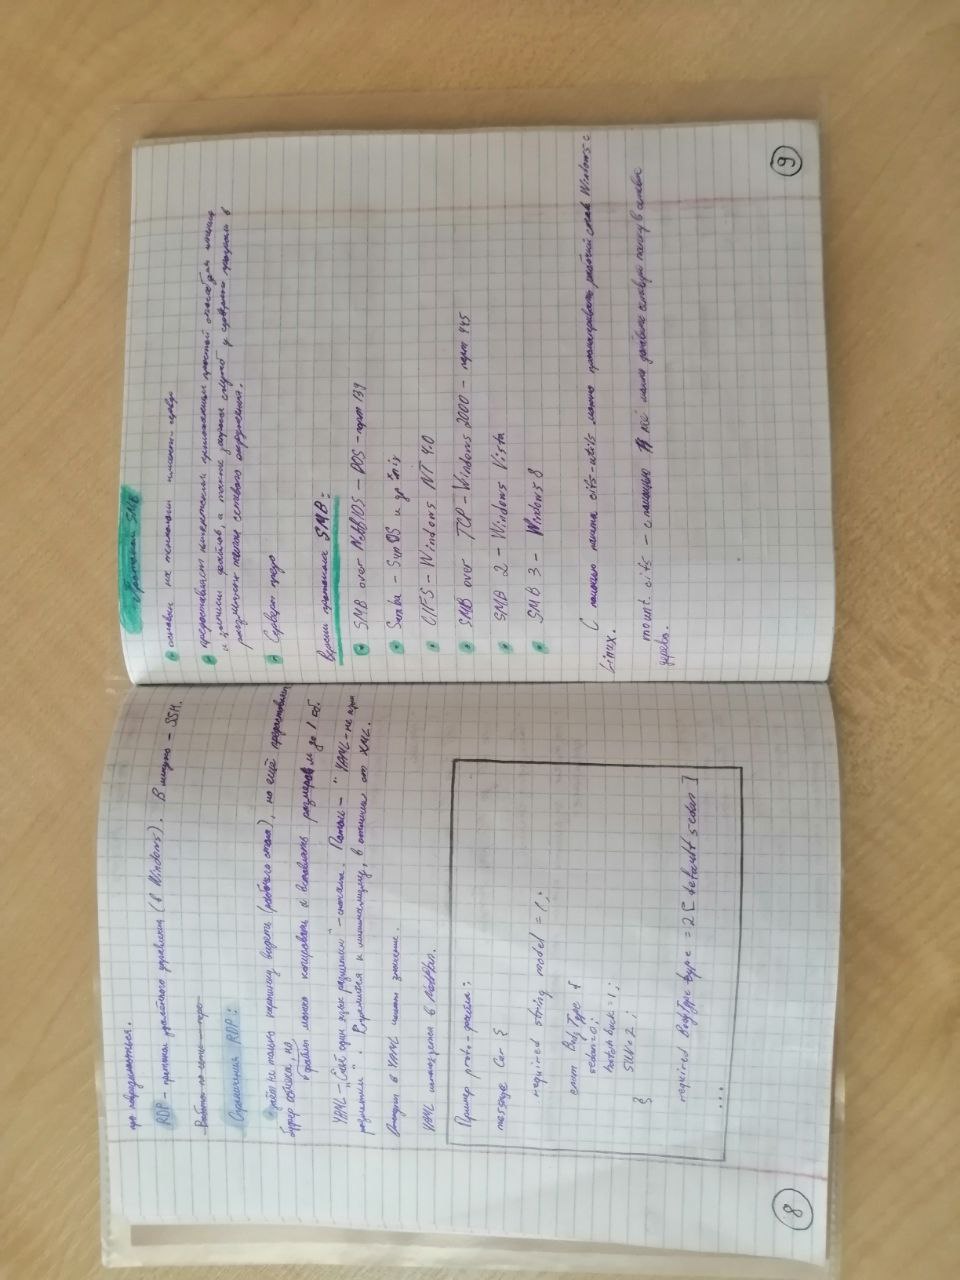 RDP – протокол удалённого управления (в Windows). В линукс – SSH.
Работа по сети – пере
Ограничения RDP:
даёт не только картинку видеть (рабочего стола), но ещё предоставляет
буфер обмена, но,
файлы можно копировать и вставлять размером до 1 Гб.
YAML – „Ещё один язык разметки" – сначала. Потом – "YAML – не язык
разметки". Стремится к минимализму, в отличии от XML.
Отступы в YAML имеют значение.
YAML используется в
Пример proto-файла:
message Car {
required string model = 1;
enum BodyType {
sedan=0;
hatchback=1;
SUV=2;
}
required BodyType type = 2 [default sedan]
...
8
Протокол SMB
основан на технологии клиент-сервер
предоставляет клиентским приложениям простой способ для чтения
и записи файлов, а также запроса служб у серверных программ в
различных типах сетевого окружения.
Серверы предо
Версии протокола SMB:
SMB over NetBIOS – DOS – порт 139
Samba – SunOS и др *nix
CIFS – Windows NT 4.0
SMB over TCP – Windows 2000 – порт 445
SMB 2 – Windows Vista
SMB 3 – Windows 8
С помощью пакета cifs-utils можно просматривать рабочий стол Windows с
Linux.
mount.cifs – с помощью неё можно добавить сетевую папку в
дерево.
9